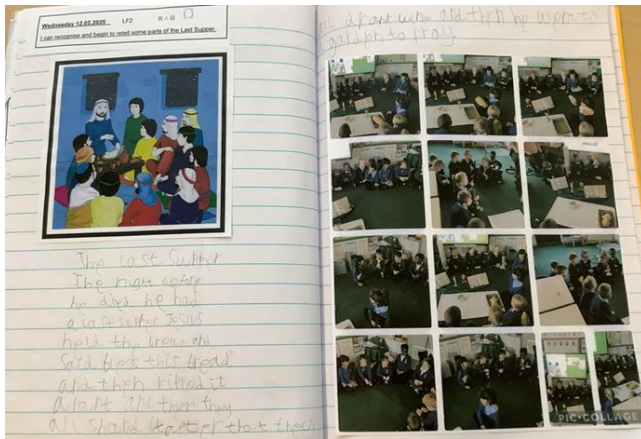 Wednesday 12.03.2025 LF2 R A G
I can recognise and begin to retell some parts of the Last Supper.
The last
The night before
he died he had
a last Jesus
held the bread and
said bless this bread
and then ripped it
apart and then they
all
and then he
to pray
PIC•COLLAGE